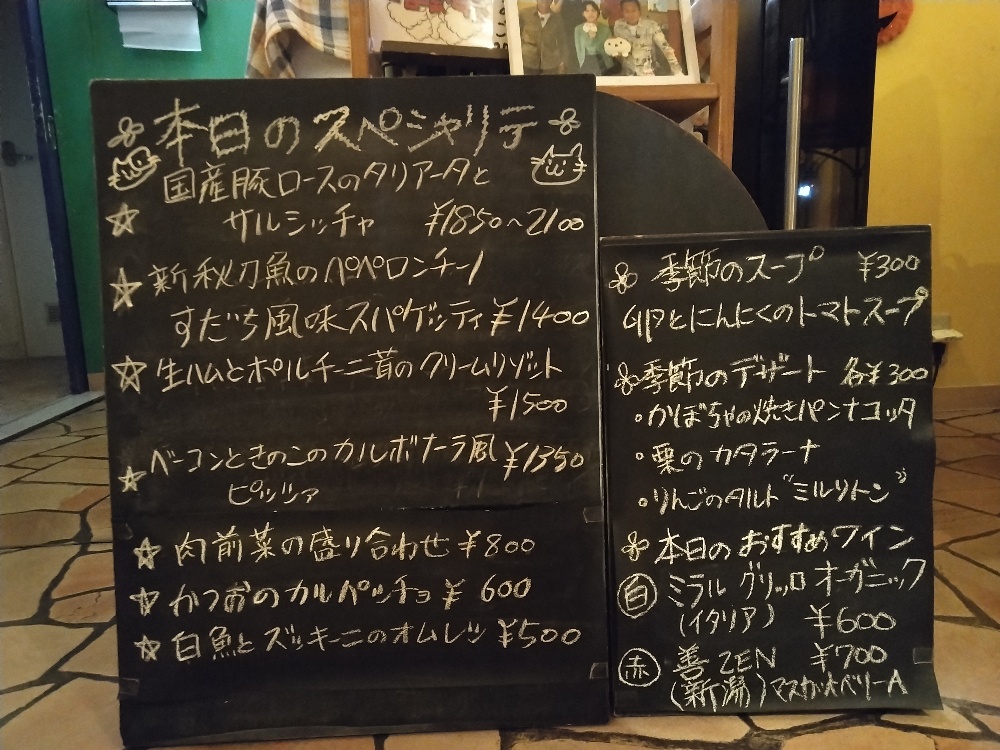 本日のスペシャリテ
国産豚ロースのタリアータと
サルシッチャ ¥1850～2100
新秋刀魚のペペロンチーノ
すだち風味スパゲッティ ¥1400
生ハムとポルチーニ茸のクリームリゾット
¥1500
ベーコンときのこのカルボナーラ風 ¥1350
ピッツァ
肉前菜の盛り合わせ ¥800
かつおのカルパッチョ ¥600
白魚とズッキーニのオムレツ ¥500
季節のスープ ¥300
卵とにんにくのトマトスープ
季節のデザート 各¥300
・かぼちゃの焼きパンナコッタ
・栗のカタラーナ
・りんごのタルト"ミルリトン"
本日のおすすめワイン
白 ミラル グリッロ オーガニック
(イタリア) ¥600
赤 善 ZEN ¥700
(新潟)マスカットベリーA